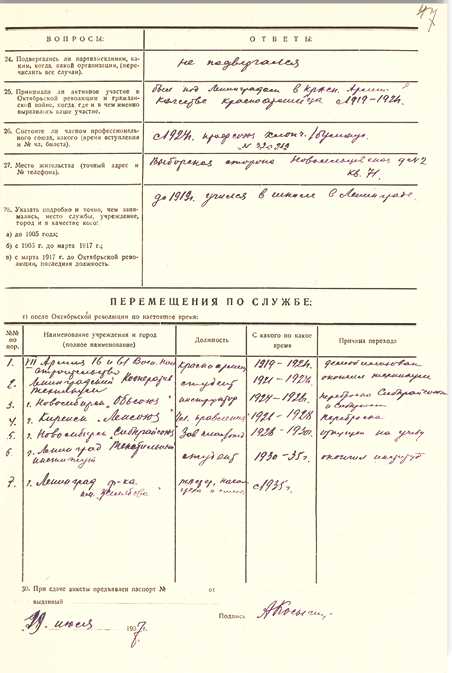 47
ВОПРОСЫ: ОТВЕТЫ:
24. Подвергались ли партвзысканиям, ка-
ким, когда, какой организации, (пере-
числить все случаи).
не подвергался
25. Принимали ли активное участие в
Октябрьской революции и граждан-
ской войне, когда где и в чем именно
выразилось ваше участие.
был под Ленинградом в красн. Армии в
качестве красноармейца с 1919-1924.
26. Состоите ли членом профессиональ-
ного союза, какого (время вступления
и № чл. билета).
с 1924 г. профсоюз
27. Место жительства (точный адрес и
№ телефона).
Выборгская сторона д № 2
кв. 71.
28. Указать подробно и точно, чем зани-
мались, место службы, учреждение,
город и в качестве кого:
до 1919 г. учился в школе в Ленинграде.
а) до 1905 года;
б) с 1905 г. до марта 1917 г.;
в) с марта 1917 г. до Октябрьской рево-
люции, последняя должность.
ПЕРЕМЕЩЕНИЯ ПО СЛУЖБЕ:
г) после Октябрьской революции по настоящее время:
№№ по пор. Наименование учреждения и город (полное наименование) Должность С какого по какое время Причина перехода
1. VII Армия 16 и 61 Воен. строительство красноармеец 1919-1924. демобилизован
2. Ленинградский техникум студент 1921-1924 окончил техникум
3. г. Новосибирск „Обсоюз" инструктор 1924-1926. переброска
4. г. Киренск 1926-1928 переброска
5. г. Новосибирск „Сибкрайсоюз" 1928-1930. на учебу
6. г. Ленинград Текстильный институт студент 1930-35 г. окончил институт
7. г. Ленинград ф-ка с 1935 г.
30. При сдаче анкеты предъявлен паспорт № от
выданный
Подпись
29. июля 1937 г.